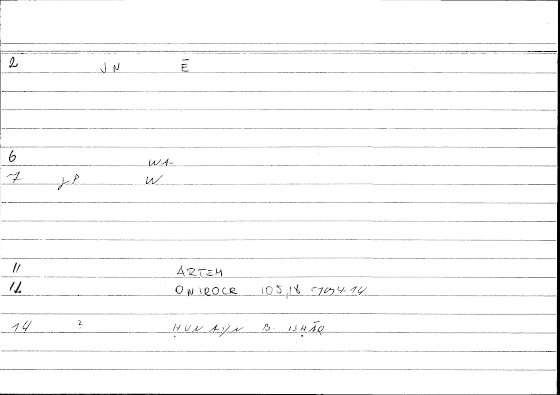 2 JN Ē
6 WA
7 JP W
11 ARTEM
12 ONIROCR 105,18
14 ? ḤUNAYN B. ISḤĀQ